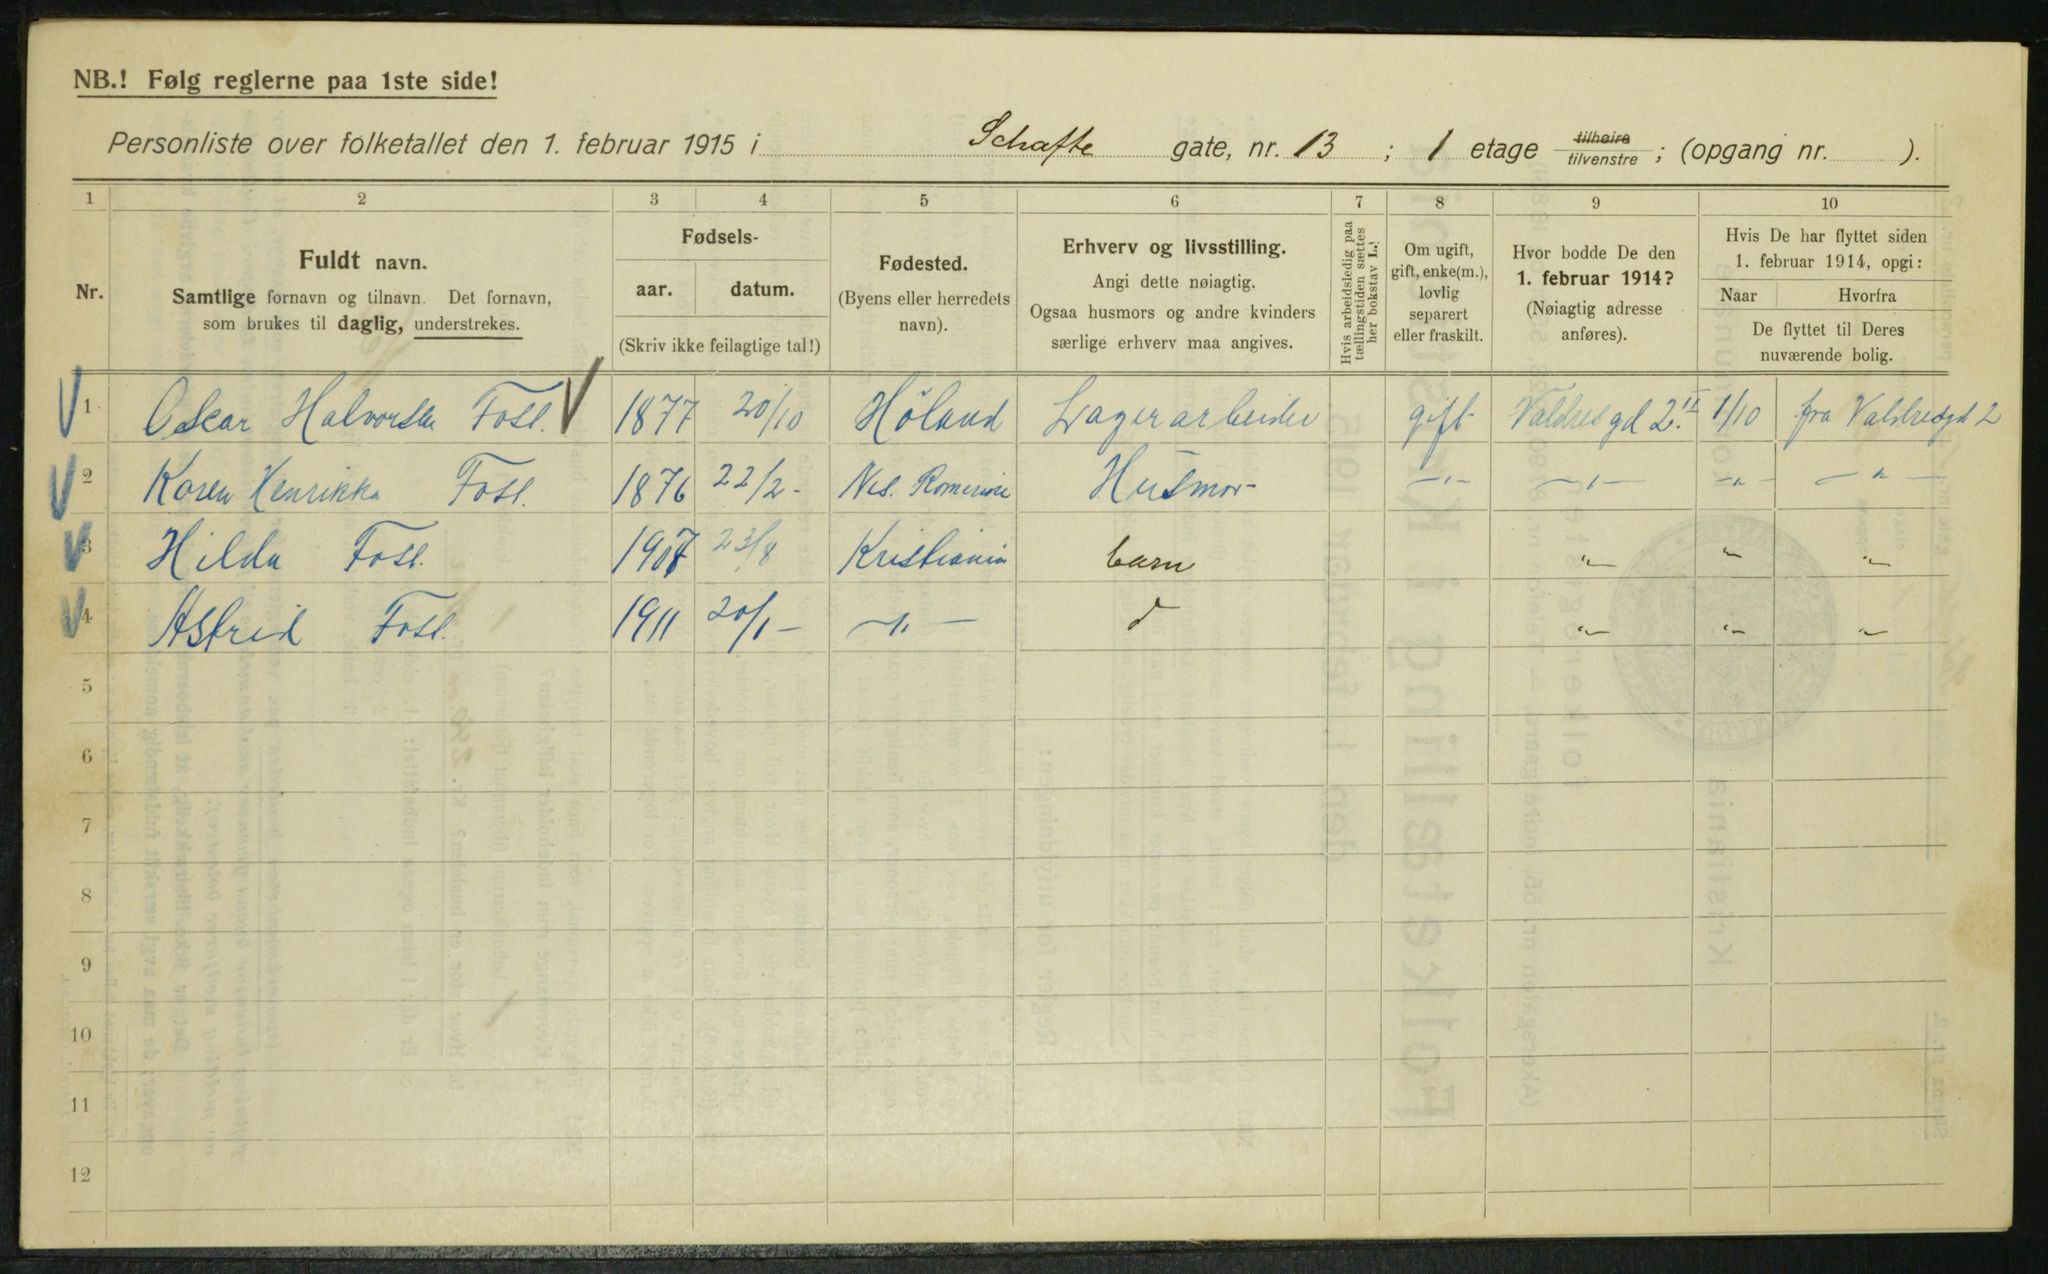 NB.! Følg reglerne paa 1ste side!
Personliste over folketallet den 1. februar 1915 i Schafte gate, nr. 13 ; 1 etage tilhøire tilvenstre ; (opgang nr. ).
1 2 3 4 5 6 7 8 9 10
Nr.
Fuldt navn.
Samtlige fornavn og tilnavn. Det fornavn,
som brukes til daglig, understrekes.
Fødsels-
aar. datum.
(Skriv ikke feilagtige tal!)
Fødested.
(Byens eller herredets
navn).
Erhverv og livsstilling.
Angi dette nøiagtig.
Ogsaa husmors og andre kvinders
særlige erhverv maa angives.
Hvis arbeidsledig paa
tællingstiden sættes
her bokstav L.!
Om ugift,
gift, enke(m.),
lovlig
separert
eller fraskilt.
Hvor bodde De den
1. februar 1914?
(Nøiagtig adresse
anføres).
Hvis De har flyttet siden
1. februar 1914, opgi:
Naar Hvorfra
De flyttet til Deres
nuværende bolig.
1 Oskar Halvorsen Fosl. 1877 20/10 Höland Lagerarbeider gift Valdresgd 2.II 1/10 fra Valdresgd 2
2 Karen Henrikka Fosl. 1876 22/2 - Nes. Romerike Husmor - " - - " - - " - - " -
3 Hilda Fosl. 1907 23/8 Kristiania barn " " "
4 Astrid Fosl. 1911 20/1 - - " - d " " "
5
6
7
8
9
10
11
12